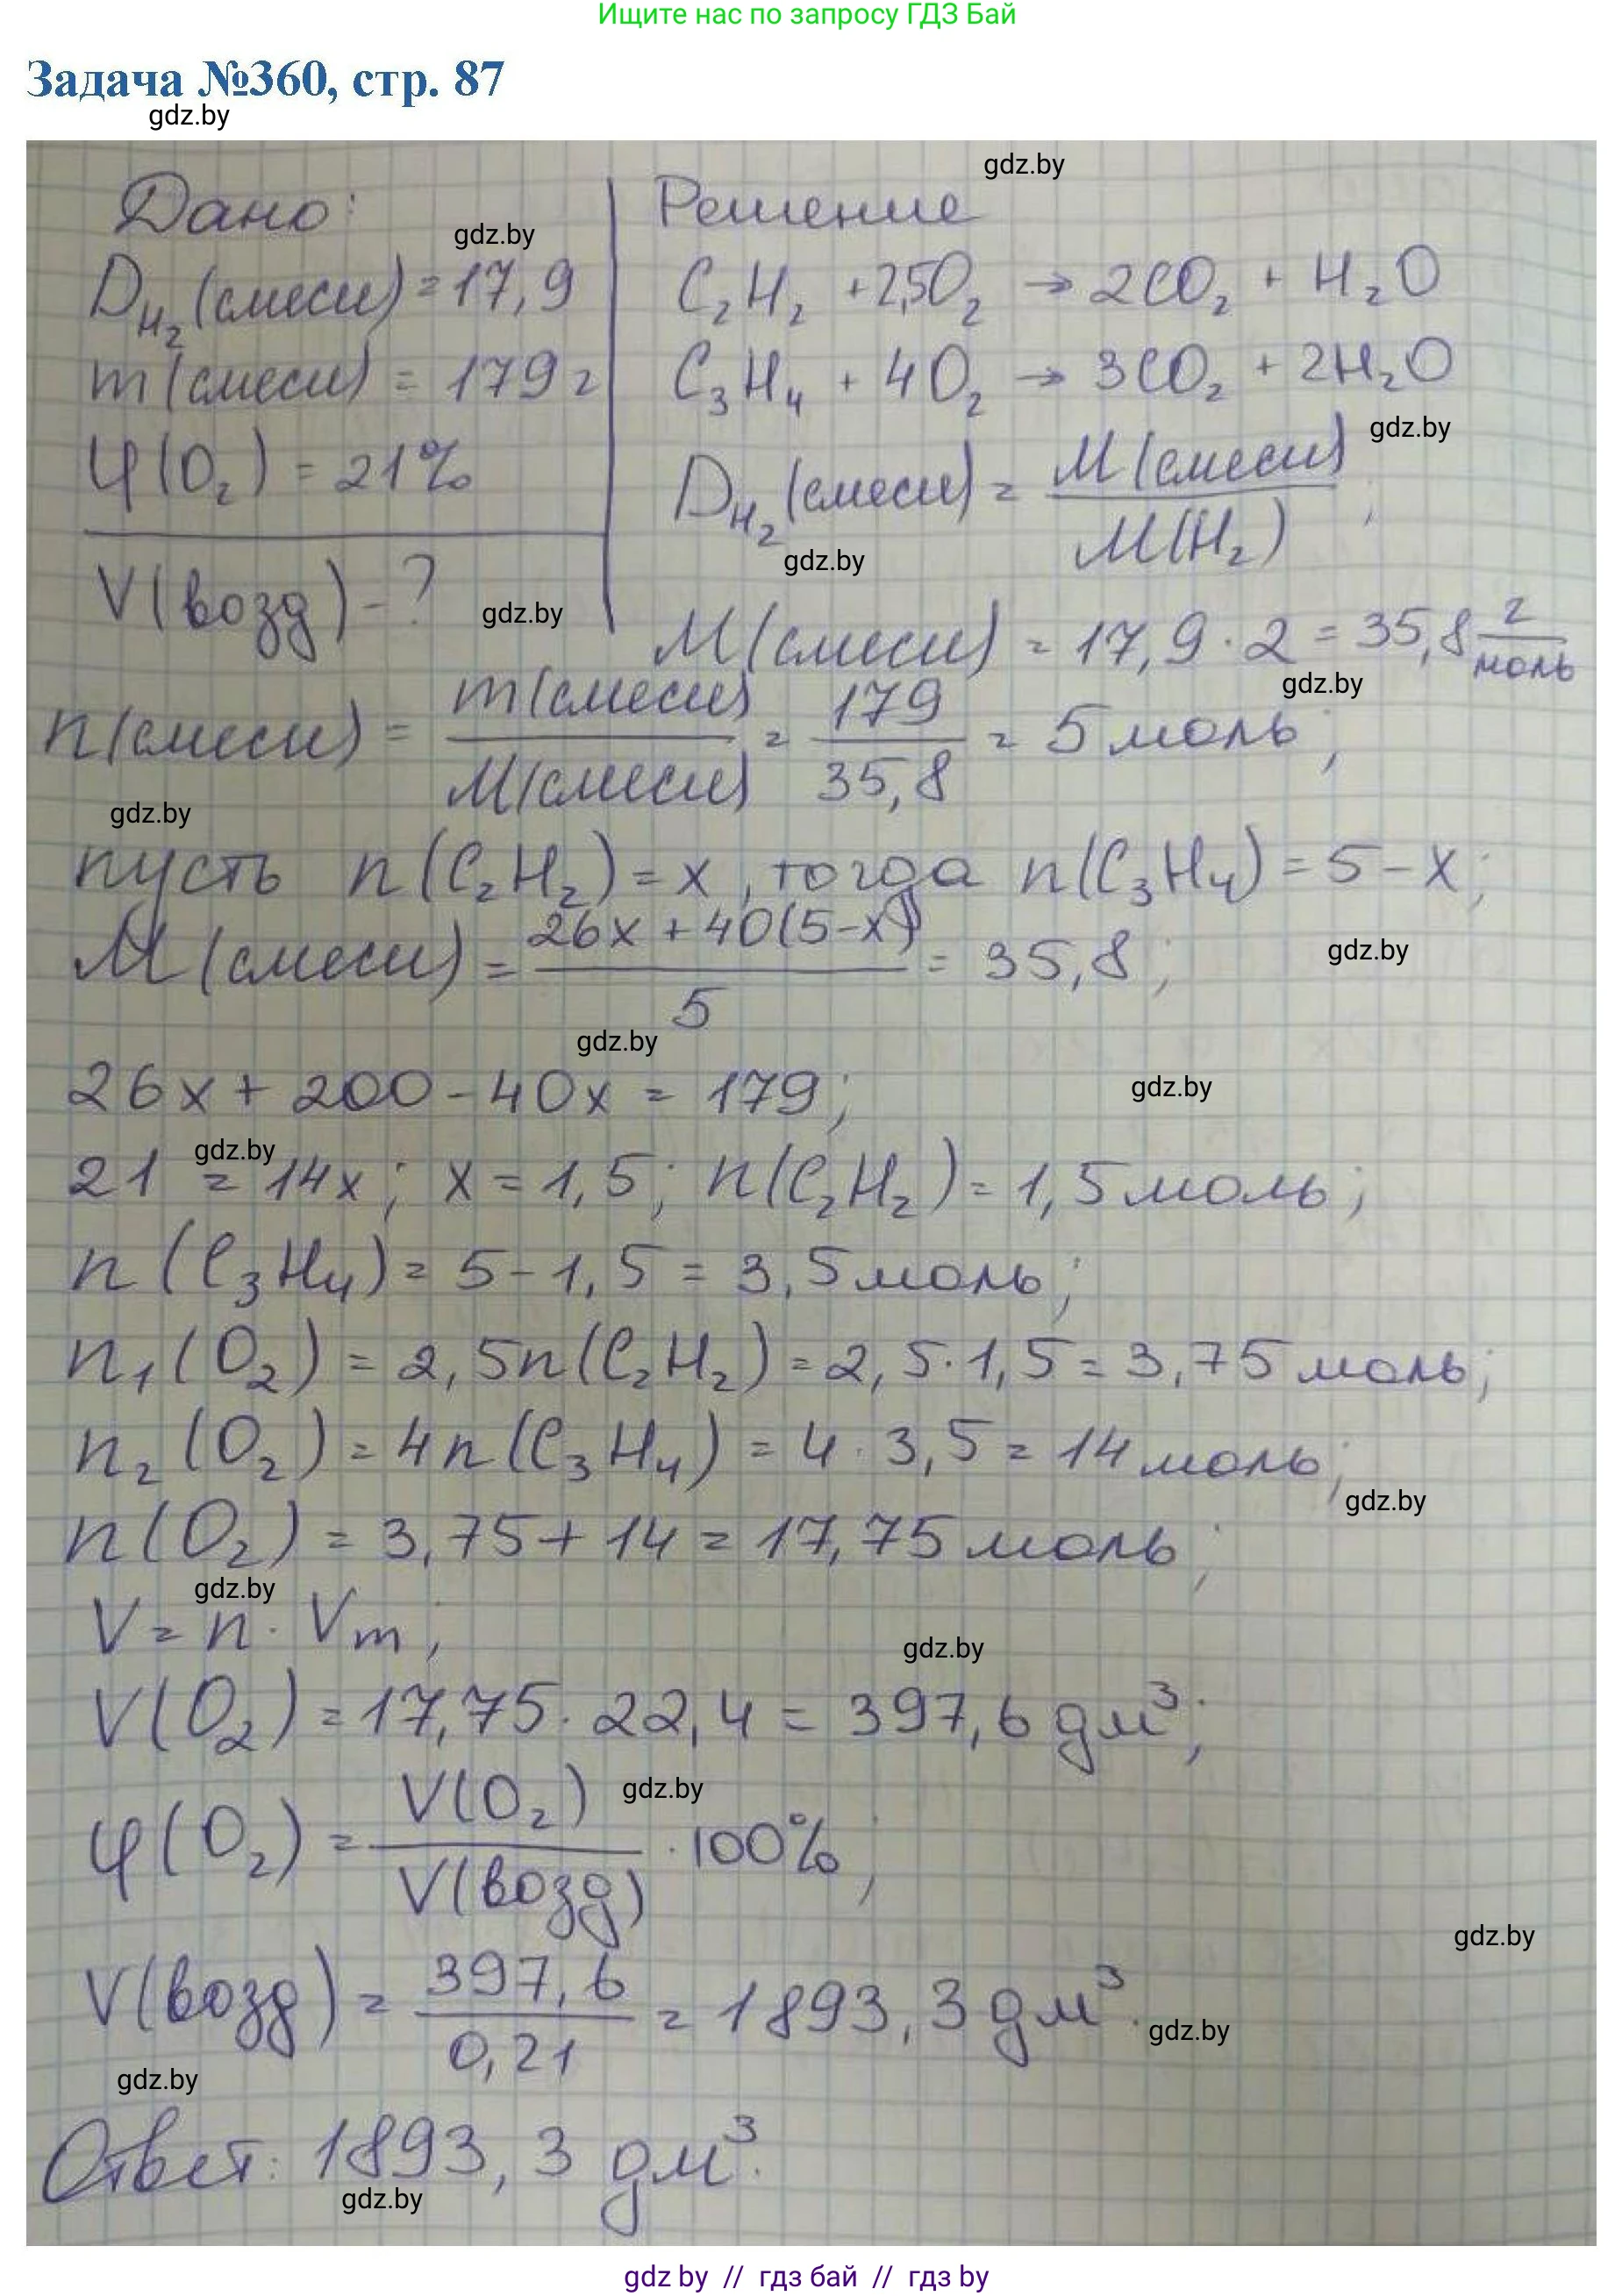 Ищите нас по запросу ГДЗ Бай
Задача №360, стр. 87
gdz.by
gdz.by
Дано:
gdz.by
D_H₂(смеси) = 17,9
m(смеси) = 179 г
φ(O₂) = 21%
V(возд) - ?
gdz.by
Решение
C₂H₂ + 2,5O₂ → 2CO₂ + H₂O
C₃H₄ + 4O₂ → 3CO₂ + 2H₂O
gdz.by
D_H₂(смеси) = M(смеси) / M(H₂) ;
gdz.by
M(смеси) = 17,9 · 2 = 35,8 г/моль
gdz.by
n(смеси) = m(смеси) / M(смеси) = 179 / 35,8 = 5 моль;
gdz.by
пусть n(C₂H₂) = x, тогда n(C₃H₄) = 5 - x;
M(смеси) = 26x + 40(5-x) / 5 = 35,8;
gdz.by
gdz.by
26x + 200 - 40x = 179;
gdz.by
gdz.by
21 = 14x; x = 1,5; n(C₂H₂) = 1,5 моль;
n(C₃H₄) = 5 - 1,5 = 3,5 моль;
n₁(O₂) = 2,5n(C₂H₂) = 2,5 · 1,5 = 3,75 моль;
n₂(O₂) = 4n(C₃H₄) = 4 · 3,5 = 14 моль;
gdz.by
n(O₂) = 3,75 + 14 = 17,75 моль;
gdz.by
V = n · Vm;
gdz.by
V(O₂) = 17,75 · 22,4 = 397,6 дм³;
gdz.by
φ(O₂) = V(O₂) / V(возд) · 100%;
gdz.by
V(возд) = 397,6 / 0,21 = 1893,3 дм³.
gdz.by
gdz.by
Ответ: 1893,3 дм³.
gdz.by
gdz by // гдз бай // гдз by